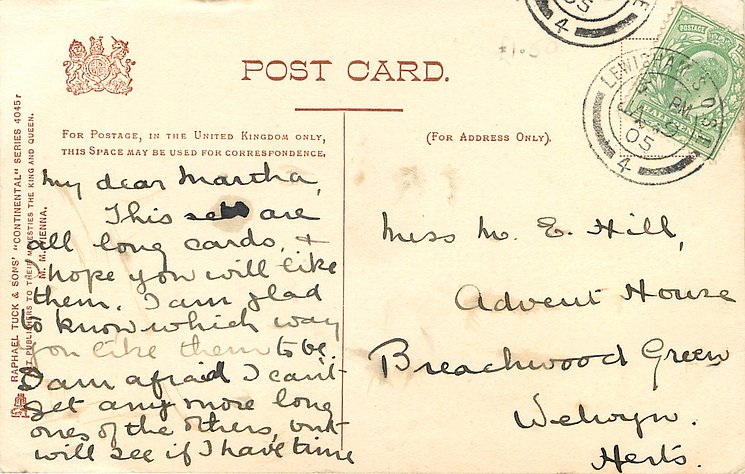 POST CARD.
For Postage, in the United Kingdom only,
this Space may be used for correspondence.
(For Address Only).
RAPHAEL TUCK & SONS' "CONTINENTAL" SERIES 4045r
PUBLISHERS TO THEIR MAJESTIES THE KING AND QUEEN.
M. M. VIENNA.
My dear Martha,
This are
all long cards, &
I hope you will like
them. I am glad
to know which way
you like them to be.
I am afraid I can't
get any more long
ones of the others, but
will see if I have time
Miss M. E. Hill,
Advent House
Breachwood Green
Welwyn.
Herts.
LEWISHAM S.O. S.E
PM
JA
05
4
05
4
E
POSTAGE